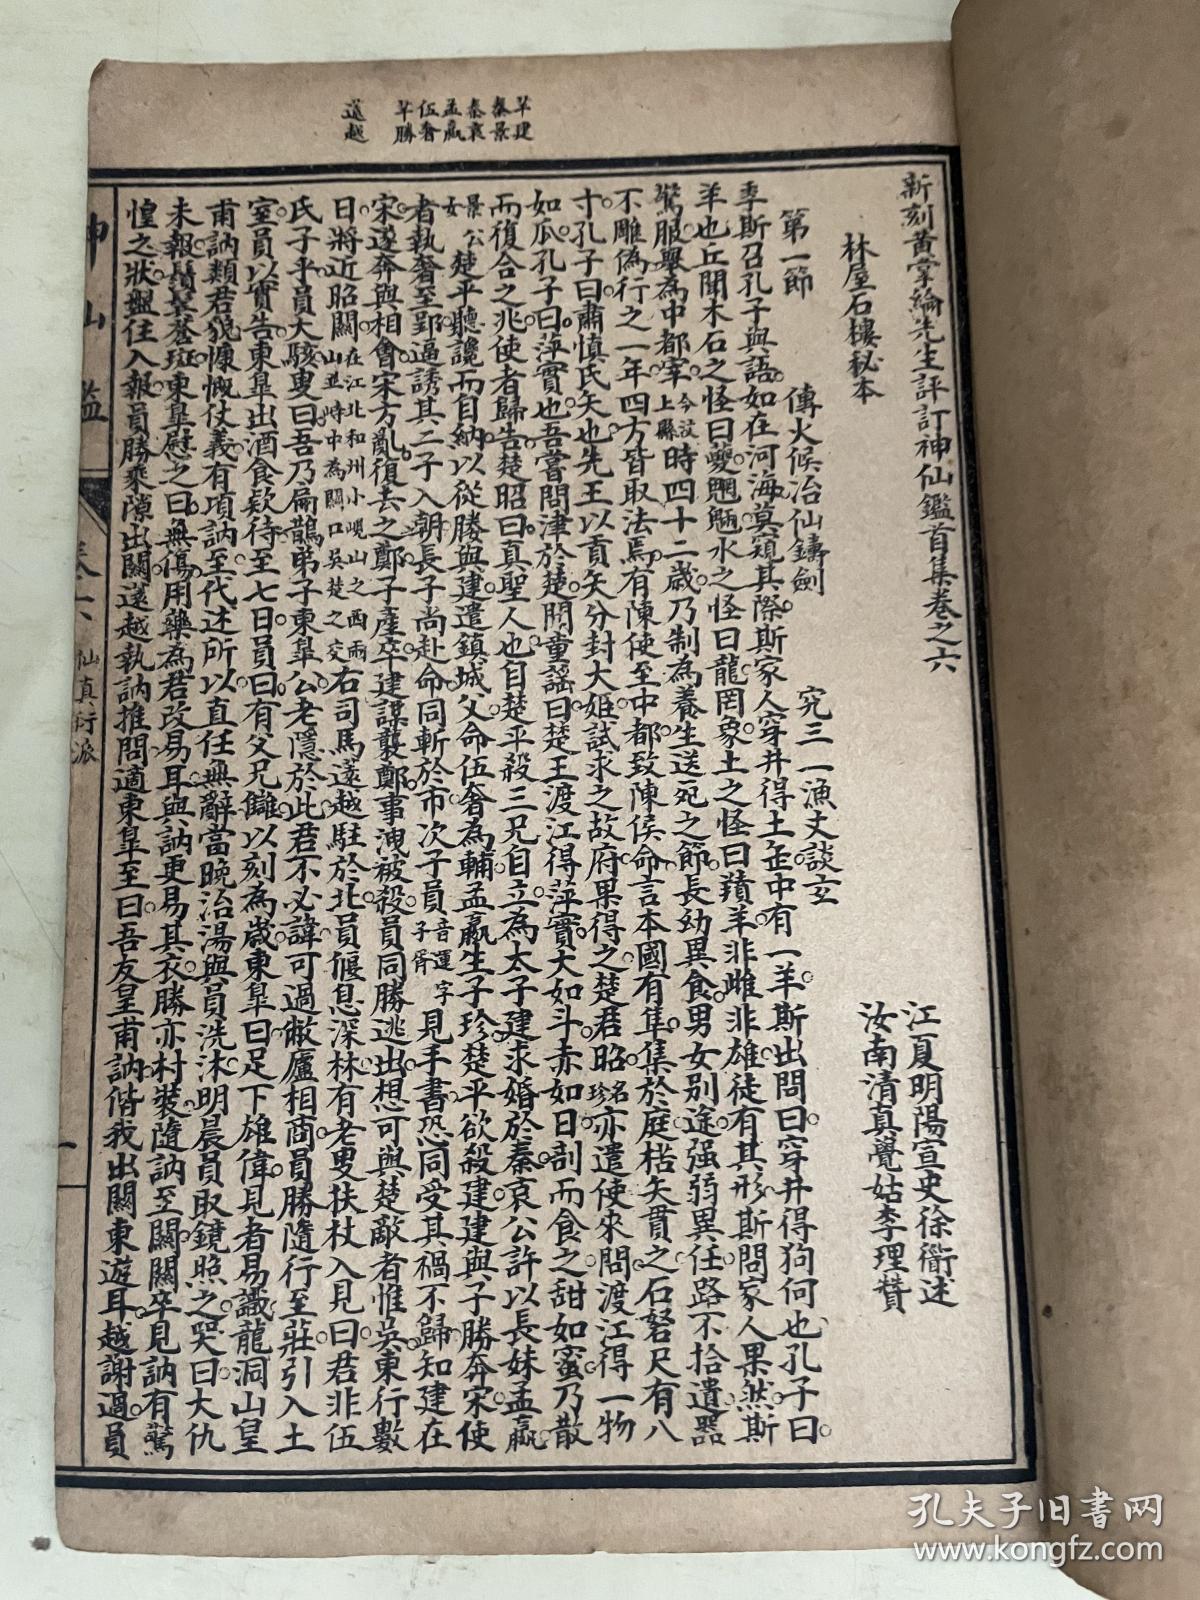 羋建
秦景
秦哀
孟嬴
伍奢
羋勝
薳越
新刻黃掌綸先生評訂神仙鑑首集卷之六
江夏明陽宣史徐衜述
林屋石樓秘本
汝南清真覺姑李理贊
第一節　傳火候冶仙鑄劍　究三一漁丈談玄
季斯召孔子與語如在河海莫窺其際斯家人穿井得土缶中有一羊斯出問曰穿井得狗何也孔子曰
羊也丘聞木石之怪曰夔魍魎水之怪曰龍罔象土之怪曰羵羊非雌非雄徒有其形斯問家人果然斯
驚服舉為中都宰今汶上縣時四十二歲乃制為養生送死之節長幼異食男女別途强弱異任路不拾遺器
不雕偽行之一年四方皆取法焉有陳使至中都致陳侯命言本國有隼集於庭楛矢貫之石砮尺有八
寸孔子曰肅慎氏矢也先王以貢矢分封大姬試求之故府果得之楚君昭名珍亦遣使來問渡江得一物
如瓜孔子曰萍實也吾嘗問津於楚聞童謠曰楚王渡江得萍實大如斗赤如日剖而食之甜如蜜乃散
而復合之兆使者歸告楚昭曰真聖人也自楚平殺三兄自立為太子建求婚於秦哀公許以長妹孟嬴
景公女楚平聽讒而自納以從媵與建遣鎮城父命伍奢為輔孟嬴生子珍楚平欲殺建建與子勝奔宋使
者執奢至郢逼誘其二子入朝長子尚赴命同斬於市次子員音運字子胥見手書恐同受其禍不歸知建在
宋遂奔與相會宋方亂復去之鄭子產卒建謀襲鄭事洩被殺員同勝逃出想可與楚敵者惟吳東行數
日將近昭關在江北和州小峴山之西兩山並峙中為關口吳楚之交右司馬薳越駐於北員偃息深林有老叟扶杖入見曰君非伍
氏子乎員大駭叟曰吾乃扁鵲弟子東皐公老隱於此君不必諱可過敝廬相商員勝隨行至莊引入土
室員以實告東皐出酒食欵待至七日員曰有父兄讎以刻為歲東皐曰足下雄偉見者易識龍洞山皇
甫訥類君貌慷慨仗義有項訥至代述所以直任無辭當晚治湯與員洗沐明晨員取鏡照之哭曰大仇
未報鬚髮蒼斑東皐慰之曰無傷用藥為君改易耳與訥更易其衣勝亦村裝隨訥至關關卒見訥有驚
惶之狀盤住入報員勝乘隙出關薳越執訥推問適東皐至曰吾友皇甫訥偕我出關東遊耳越謝過員
神山鑑
卷六
仙真衍派
一
孔夫子旧书网
www.kongfz.com